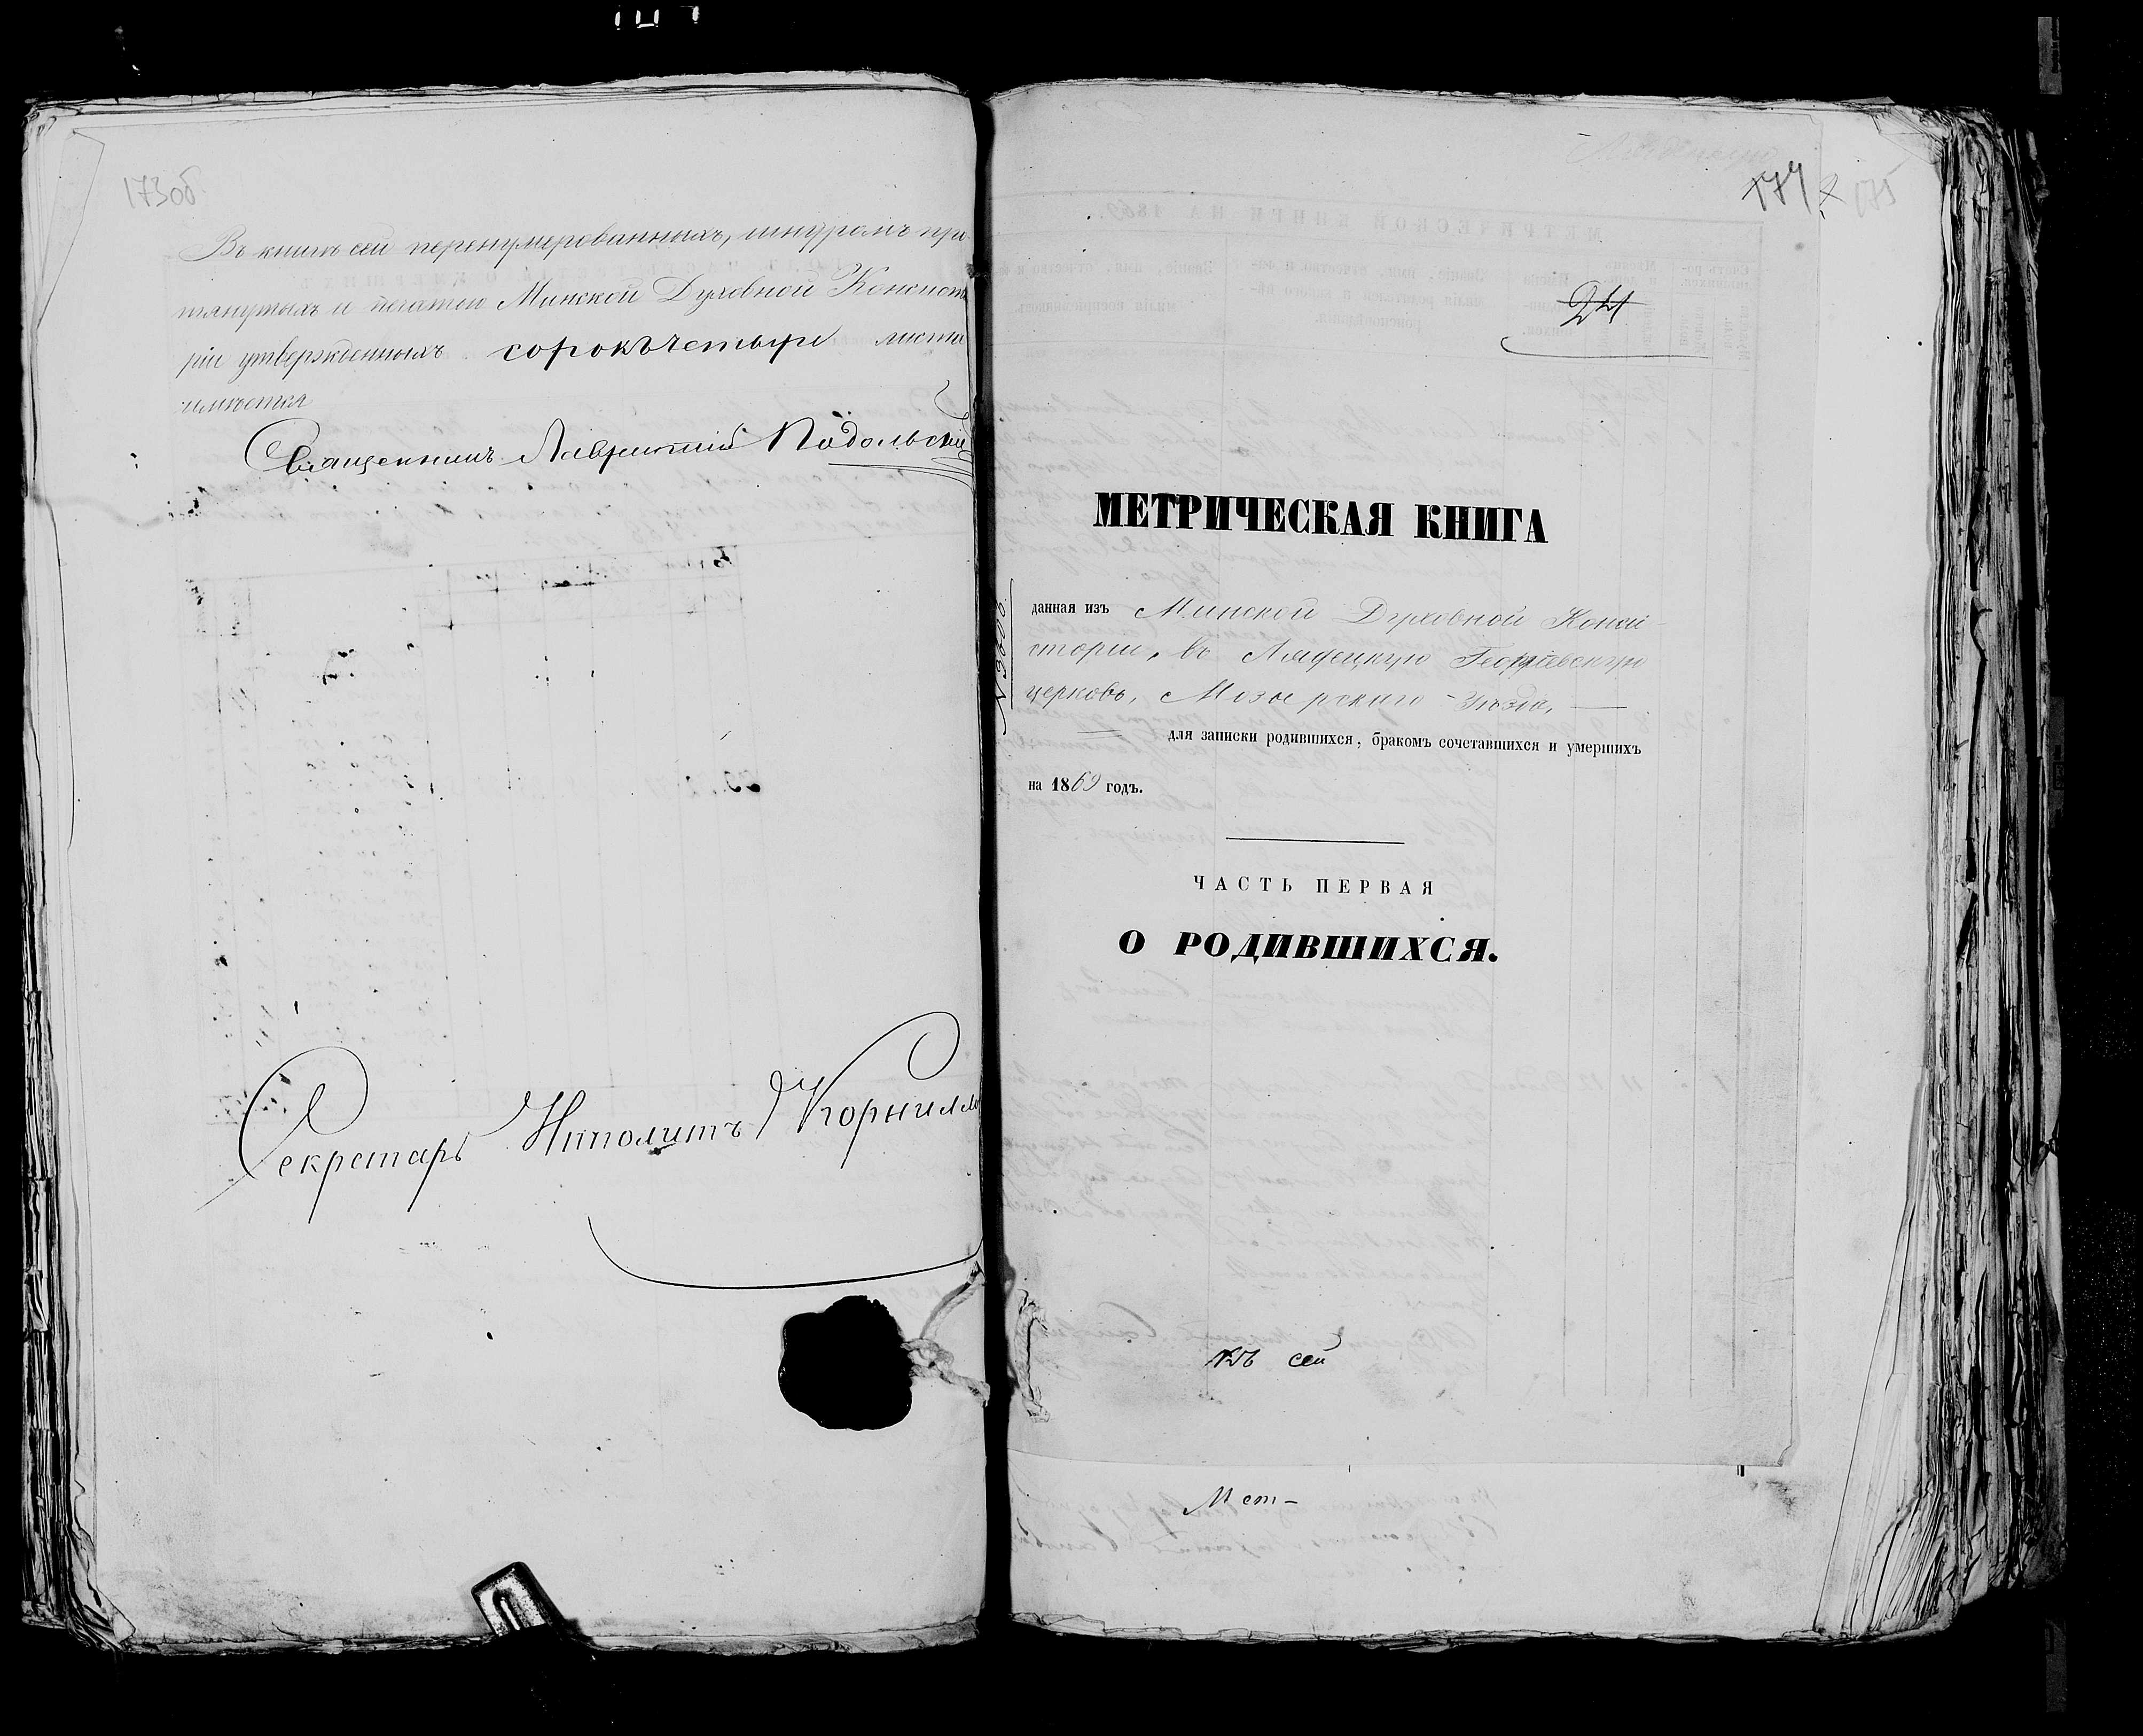 173об
Въ книгѣ сей перенумерованныхъ, шнуромъ про
тянутыхъ и печатью Минской Духовной Консисто
ріи утвержденныхъ сорокъ четыре листа
имѣется
Священникъ Лаврентій Подольскій
Секретарь Ипполитъ Корнилло
174
175
24
МЕТРИЧЕСКАЯ КНИГА
данная изъ Минской Духовной Конси-
сторіи, въ Лядецкую Георгіевскую
церковь, Мозырскаго Уѣзда,
для записки родившихся, бракомъ сочетавшихся и умершихъ
на 1869 годъ.
ЧАСТЬ ПЕРВАЯ
О РОДИВШИХСЯ.
сей
Мет-